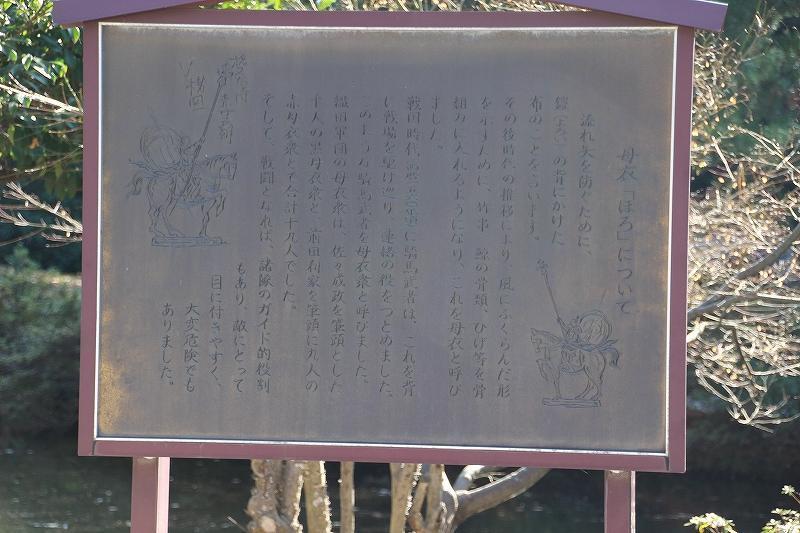 母衣「ほろ」について
流れ矢を防ぐために、
鎧(よろい)の背にかけた
布のことを言います。
その後時代の推移により、風にふくらんだ形
を示すために、竹串、鯨の骨類、ひげ等を骨
組みに入れるようになり、これを母衣と呼び
ました。
戦国時代、に騎馬武者は、これを背
に戦場を駆け巡り、連絡の役をつとめました。
このような騎馬武者を母衣衆と呼びました。
織田軍団の母衣衆は、佐々成政を筆頭とした
十人の黒母衣衆と、前田利家を筆頭に九人の
赤母衣衆とで合計十九人でした。
そして、戦闘となれば、諸隊のガイド的役割
もあり、敵にとって
目に付きやすく、
大変危険でも
ありました。